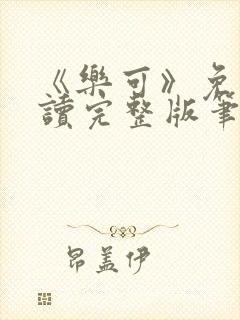 《樂可》免
讀完整版筆
昂盖伊